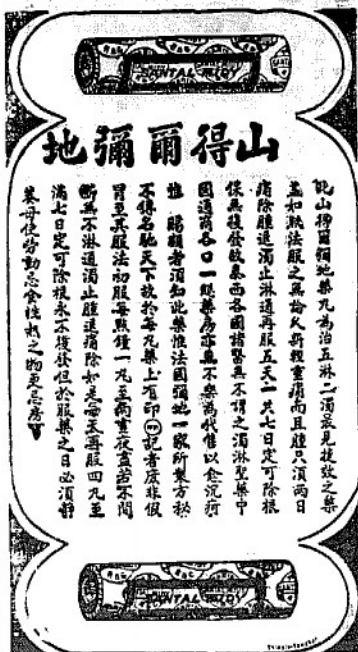 SANTAL MIDY
山得爾彌地
此山得爾彌地藥丸為治五淋二濁最見捷效之藥
蓋如法服之無論久新輕重痛而且腫只須兩日
痛除腫退濁止淋通再服五天一共七日定可除根
無復發故泰西各國諸醫無不謂之濁淋聖藥中
國通商各口一藥房亦無不樂為代售以愈沉疴
惟 賜顧者須知此藥惟法國彌地一家所製方秘
不傳名馳天下故於每丸藥上有印記者庶非假
冒至其服法初服每點鐘一丸至兩晝夜若不間
斷無不淋通濁止腫退痛除如是每天再服四丸至
滿七日定可除根永不復發但於服藥之日必須靜
養毋使勞動忌食性熱之物更忌房事
SANTAL MIDY